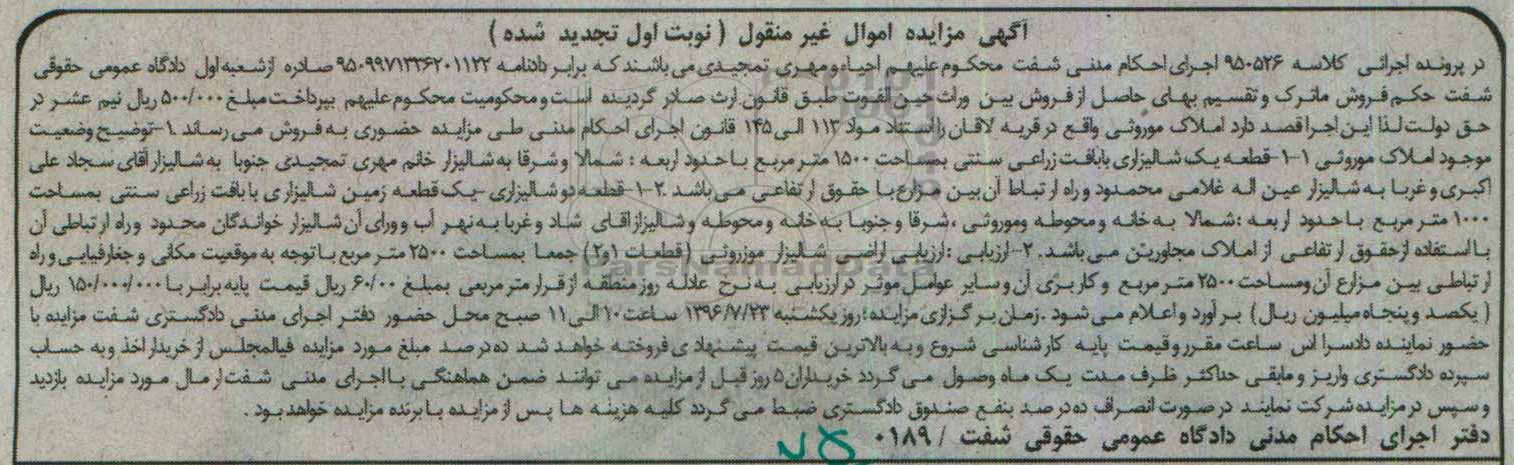 آگهی مزایده اموال غیر منقول ( نوبت اول تجدید شده )
در پرونده اجرائی کلاسه ۹۵۰۵۲۶ اجرای احکام مدنی شفت محکوم علیهم احیاء ومهری تمجیدی می باشند که برابر دادنامه ۹۵۰۹۹۷۱۳۳۶۲۰۱۱۲۲ صادره ازشعبه اول دادگاه عمومی حقوقی
شفت حکم فروش ماترک و تقسیم بهای حاصل از فروش بین وراث حین الفوت طبق قانون ارث صادر گردیده است و محکومیت محکوم علیهم بپرداخت مبلغ ۵۰۰/۰۰۰ ریال نیم عشر در
حق دولت لذا این اجرا قصد دارد املاک موروثی واقع در قریه لاقان را استناد مواد ۱۱۳ الی ۱۴۵ قانون اجرای احکام مدنی طی مزایده حضوری به فروش می رساند .۱-توضیح وضعیت
موجود املاک موروثی ۱-۱-قطعه یک شالیزاری بابافت زراعی سنتی بمساحت ۱۵۰۰ متر مربع با حدود اربعه : شمالا وشرقا به شالیزار خانم مهری تمجیدی جنوبا به شالیزار آقای سجاد علی
اکبری و غربا به شالیزار عین اله غلامی محمدود و راه ارتباط آن بین مزارع با حقوق ارتفاعی می باشد .۲-۱-قطعه دو شالیزاری -یک قطعه زمین شالیزاری با بافت زراعی سنتی بمساحت
۱۰۰۰ متر مربع با حدود اربعه :شمالا به خانه ومحوطه وموروثی ،شرقا وجنوبا به خانه ومحوطه و شالیزار اقای شاد و غربا به نهر آب و ورای آن شالیزار خواندگان محدود وراه ارتباطی آن
با استفاده ازحقوق ارتفاعی از املاک مجاورین می باشد. ۲-ارزیابی :ارزیابی اراضی شالیزار موزروثی (قطعات ۱و۲) جمعا بمساحت ۲۵۰۰ متر مربع با توجه به موقعیت مکانی و جغارفیایی و راه
ارتباطی بین مزارع آن ومساحت ۲۵۰۰ متر مربع و کاربری آن و سایر عوامل موثر در ارزیابی به نرخ عادله روز منطقه از قرار متر مربعی بمبلغ ۶۰/۰۰ ریال قیمت پایه برابر با ۱۵۰/۰۰۰/۰۰۰ ریال
( یکصد وپنجاه میلیون ریال) برآورد و اعلام می شود .زمان برگزاری مزایده :روز یکشنبه ۱۳۹۶/۷/۲۳ ساعت ۱۰ الی ۱۱ صبح محل حضور دفتر اجرای مدنی دادگستری شفت مزایده با
حضور نماینده دادسرا اس ساعت مقرر و قیمت پایه کارشناسی شروع و به بالاترین قیمت پیشنهادی فروخته خواهد شد ده درصد مبلغ مورد مزایده فیالمجلس از خریدار اخذ وبه حساب
سپرده دادگستری واریز و مابقی حداکثر ظرف مدت یک ماه وصول می گردد خریداران ۵ روز قبل از مزایده می توانند ضمن هماهنگی با اجرای مدنی شفت از مال مورد مزایده بازدید
و سپس در مزایده شرکت نمایند در صورت انصراف ده در صد بنفع صندوق دادگستری ضبط می گردد کلیه هزینه ها پس از مزایده با برنده مزایده خواهد بود .
دفتر اجرای احکام مدنی دادگاه عمومی حقوقی شفت / ۰۱۸۹
ParsNamadData